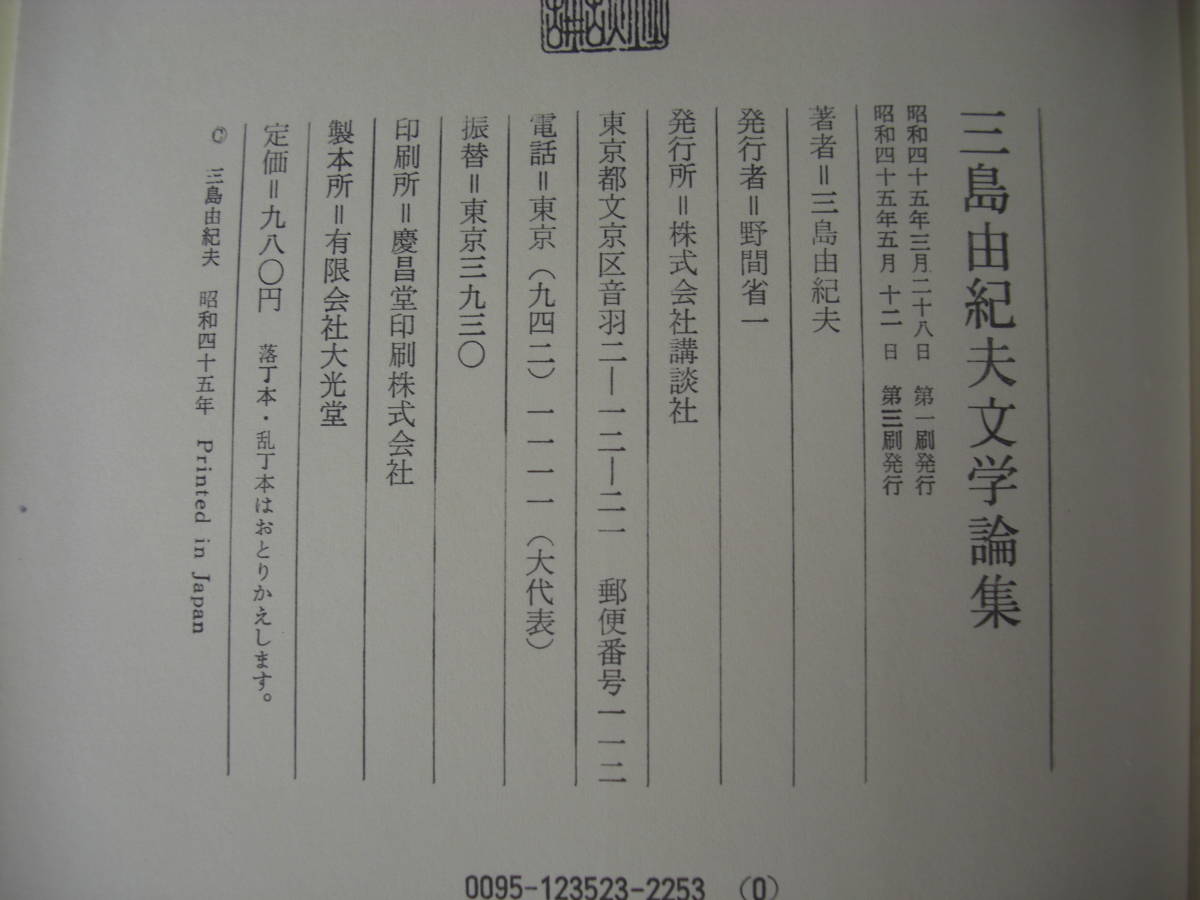 三島由紀夫文学論集
昭和四十五年三月二十八日　第一刷発行
昭和四十五年五月　十二　日　第三刷発行
著者＝三島由紀夫
発行者＝野間省一
発行所＝株式会社講談社
東京都文京区音羽二―一二―二一　郵便番号一一二
電話＝東京（九四二）一一一一（大代表）
振替＝東京三九三〇
印刷所＝慶昌堂印刷株式会社
製本所＝有限会社大光堂
定価＝九八〇円　落丁本・乱丁本はおとりかえします。
© 三島由紀夫　昭和四十五年　Printed in Japan
0095-123523-2253 (0)